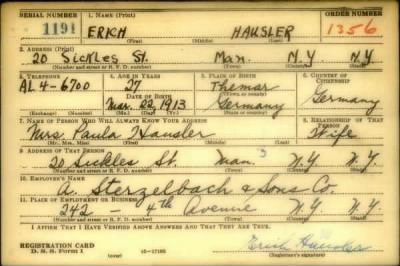 SERIAL NUMBER 1. NAME (Print) ORDER NUMBER
1191 ERICH HAUSLER 1356
(First) (Middle) (Last)
2. ADDRESS (Print)
20 Sickles St. Man. N.Y. N.Y.
(Number and street or R. F. D. number) (Town) (County) (State)
3. TELEPHONE 4. AGE IN YEARS 5. PLACE OF BIRTH 6. COUNTRY OF CITIZENSHIP
AL 4-6700 27 Themar Germany
DATE OF BIRTH
Mar. 22, 1913 Germany
(Exchange) (Number) (Mo.) (Day) (Yr.) (Town) (County) (State or country)
7. NAME OF PERSON WHO WILL ALWAYS KNOW YOUR ADDRESS 8. RELATIONSHIP OF THAT PERSON
Mrs. Paula Hausler Wife
(Mr., Mrs., Miss) (First) (Middle) (Last)
9. ADDRESS OF THAT PERSON
20 Sickles St. Man. N.Y. N.Y.
(Number and street or R. F. D. number) (Town) (County) (State)
10. EMPLOYER'S NAME
A. Sterzelbach & Sons Co.
11. PLACE OF EMPLOYMENT OR BUSINESS
242 - 4th Avenue N.Y. N.Y.
(Number and street or R. F. D. number) (Town) (County) (State)
I AFFIRM THAT I HAVE VERIFIED ABOVE ANSWERS AND THAT THEY ARE TRUE.
REGISTRATION CARD
D. S. S. Form 1 (over) 16-17105 Erich Hausler
(Registrant's signature)